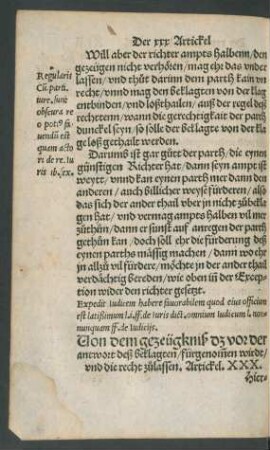 Der xxx Artickel
Will aber der richter ampts halbenn/den
gezeügen nicht verhören/mag ehr das vnder
lassen/vnd thüt darinn dem parth kain vn
recht/vnnd mag den beklagten von der klag
entbinden/vnd loßzhailen/auß der regel deß
rechtenn/wann die gerechtigkait der parth
dunckel seyn/so solle der beklagte von der kla
geloß gethailt werden.
Regularit
Cū parti.
iure. sunt
obscura re
o potiꝰ fa
uendū est
quam acto
ri de re. iu
ris ib. sex.
Darumb ist gar gütt der parth/die eynen
günstigen Richter hat/dann seyn ampt ist
weytt/vnnd kan eynen parth mer dann den
anderen/auch billicher weyse fürderen/also
das sich der ander thail vber jn nicht zůbekla
gen hat/vnd vermag ampts halben vil mer
zuthün/dann er sunst auff anregen der parth
gethün kan/doch soll ehr die fürderung deß
eynen parths mässig machen/dann wo ehr
jn allzů vil fürdere/möchte jn der ander thail
verdächtig bereden/wie oben in der Exception
wider den richter gesetzt.
Expedit iudicem habere fauorabilem quod eius officium
est latissimum l. i. ff. de iuris dict. omnium iudicum l. non
nunquam ff. de iudicijs.
Von dem gezeügkniß dz vor der
antwort deß beklagten/fürgenom̄en wirdt/
vnd die recht zůlassen. Artickel. XXX.
Hier-